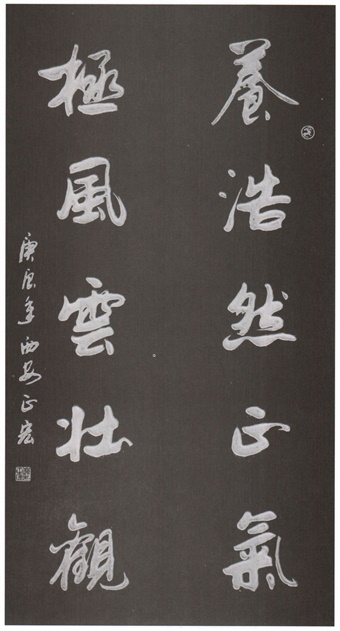 養浩然正氣
極風雲壯觀
庚辰年西安正宏